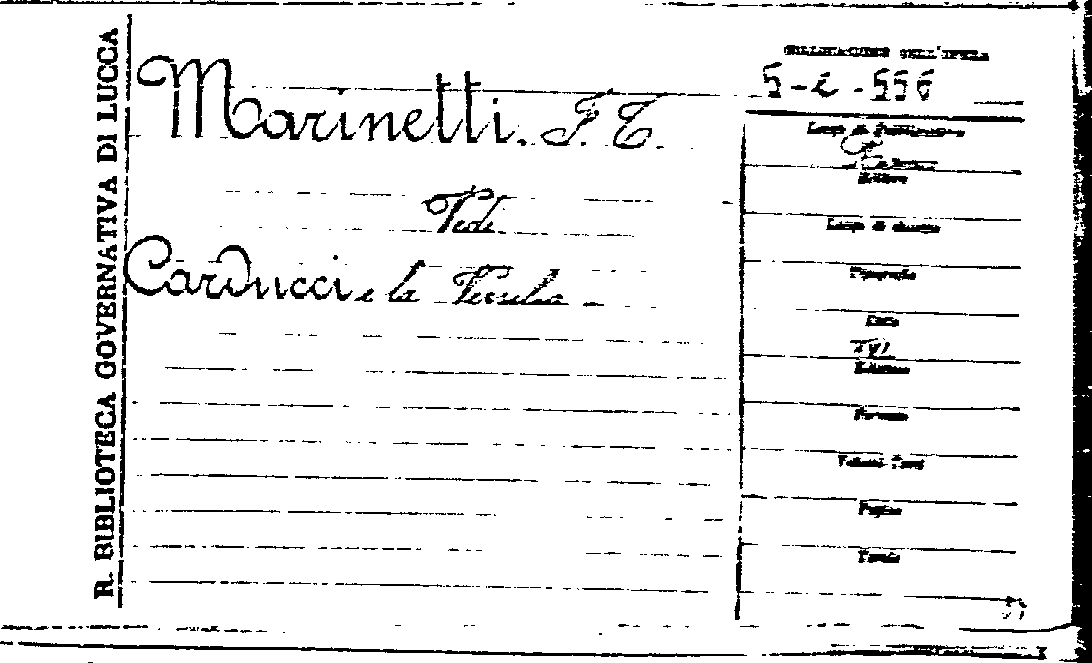 R. BIBLIOTECA GOVERNATIVA DI LUCCA
Marinetti. F. T.
Vedi
Carducci e la Versilia -
COLLOCAZIONE DELL'OPERA
5-C-556
Luogo di Pubblicazione
Editore
Luogo di stampa
Tipografia
Data
Edizione
Formato
Volumi-Tomi
Pagine
Tavole